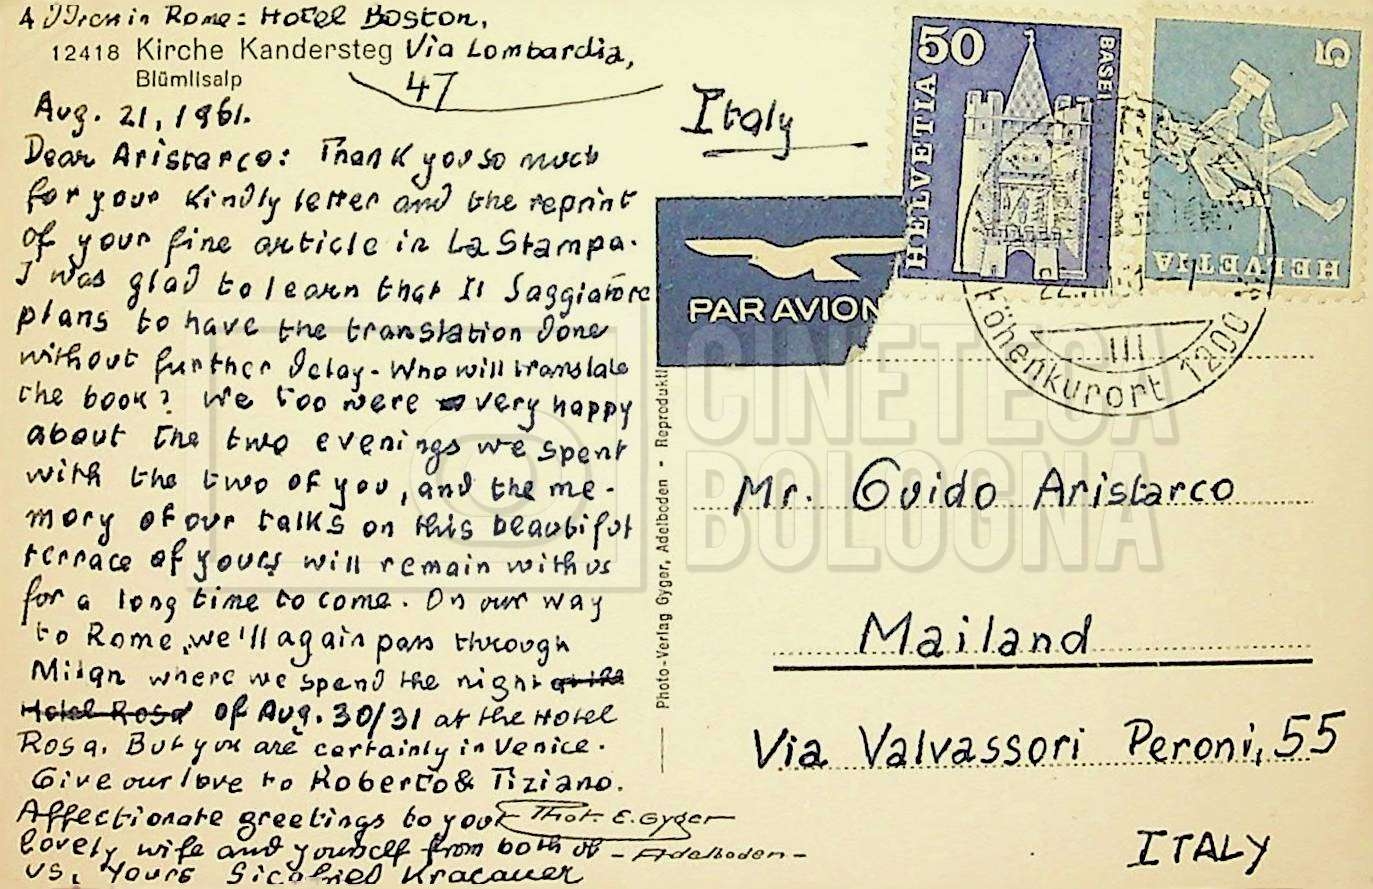 Address in Rome: Hotel Boston,
12418 Kirche Kandersteg Via Lombardia,
Blümlisalp 47
Aug. 21, 1961.
Dear Aristarco: Thank you so much
for your kindly letter and the reprint
of your fine article in La Stampa.
I was glad to learn that Il Saggiatore
plans to have the translation done
without further delay - Who will translate
the book? We too were very happy
about the two evenings we spent
with the two of you, and the me-
mory of our talks on this beautiful
terrace of yours will remain with us
for a long time to come. On our way
to Rome, we'll again pass through
Milan where we spend the night at the
Hotel Rosa of Aug. 30/31 at the Hotel
Rosa. But you are certainly in Venice.
Give our love to Roberto & Tiziano.
Affectionate greetings to your
lovely wife and yourself from both of
us, Yours Siegfried Kracauer
Phot. E. Gyger
- Adelboden -
Photo-Verlag Gyger, Adelboden • Reprodukti
Italy
PAR AVION
50
HELVETIA
BASEL
5
HELVETIA
Höhenkurort 1200
III
Mr. Guido Aristarco
Mailand
Via Valvassori Peroni, 55
ITALY
CINETECA
BOLOGNA